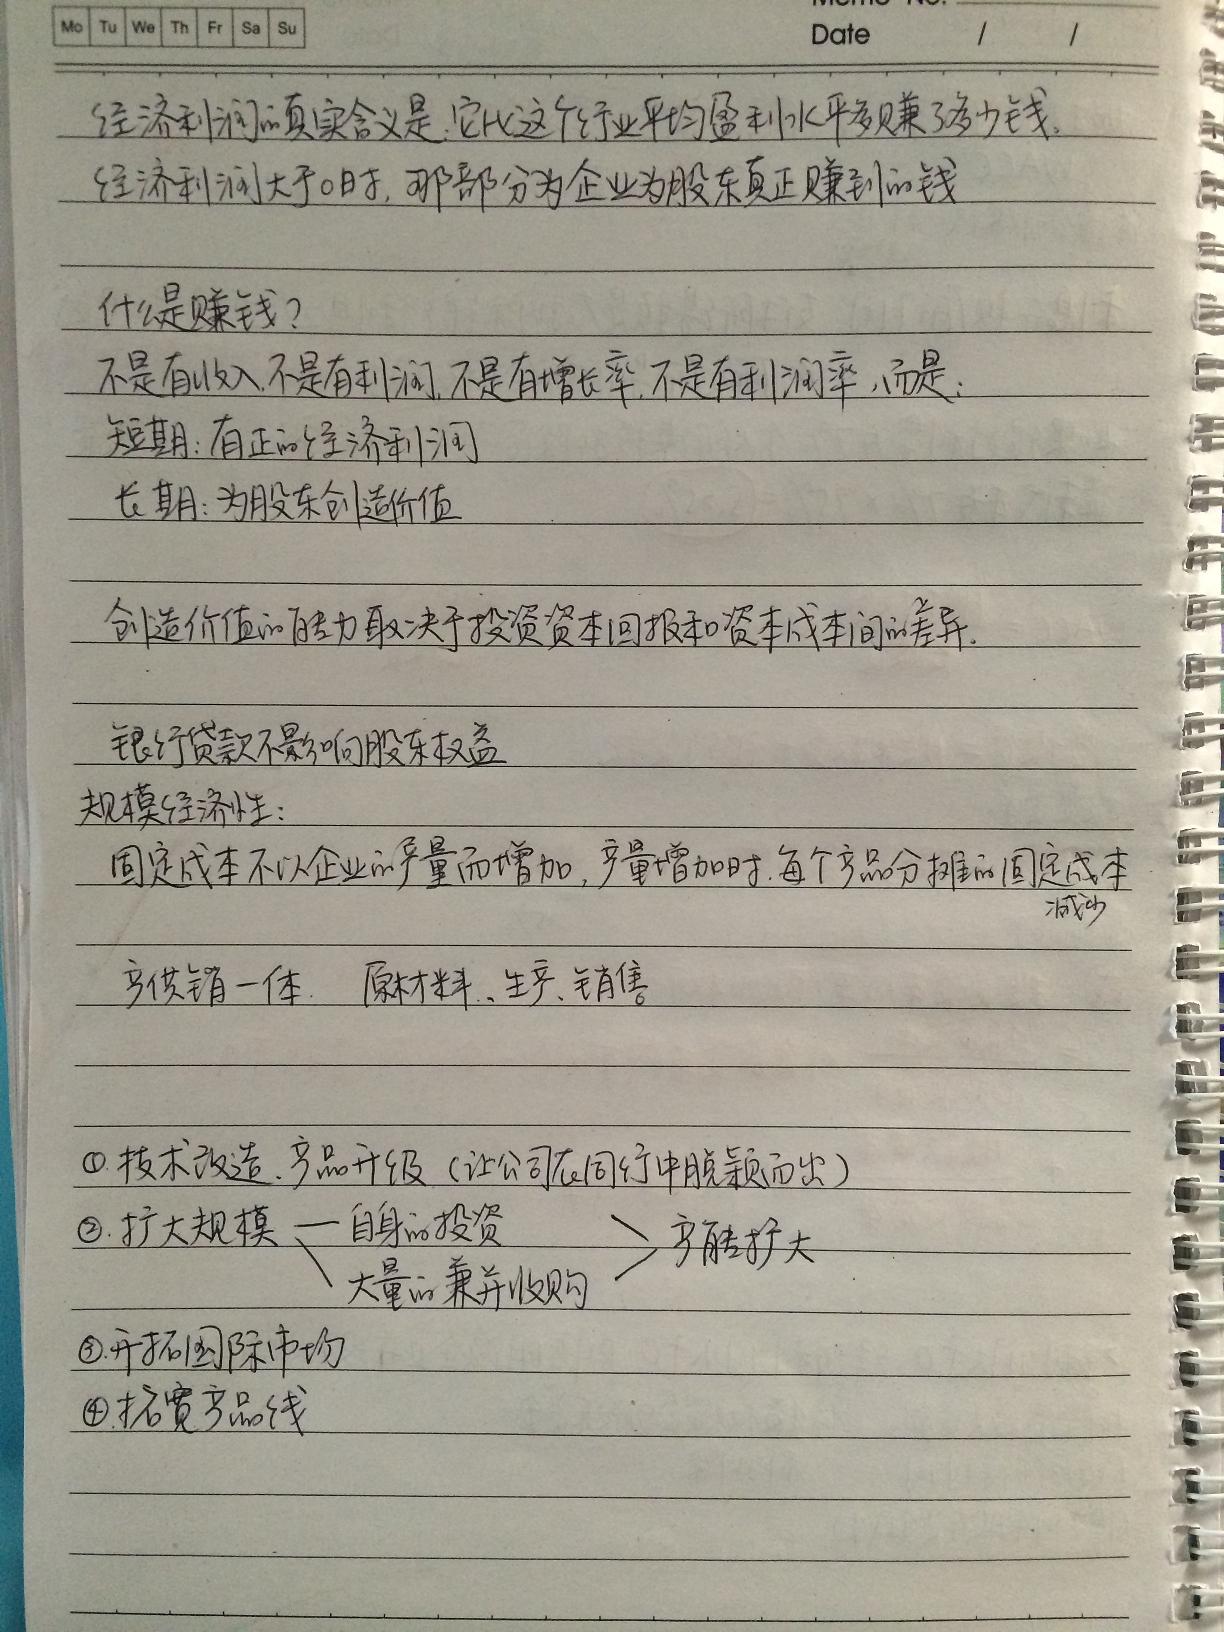 Mo Tu We Th Fr Sa Su
Memo No.
Date / /
经济利润的真实含义是:它比这个行业平均盈利水平多赚了多少钱.
经济利润大于0时,那部分为企业为股东真正赚到的钱
什么是赚钱?
不是有收入,不是有利润,不是有增长率,不是有利润率,而是:
短期:有正的经济利润
长期:为股东创造价值
创造价值的能力取决于投资资本回报和资本成本间的差异.
银行贷款不影响股东权益
规模经济性:
固定成本不以企业的产量而增加,产量增加时.每个产品分摊的固定成本
减少
产供销一体. 原材料、生产、销售。
①.技术改造、产品升级(让公司在同行中脱颖而出)
②.扩大规模 — 自身的投资
大量的兼并收购
产能扩大
③.开拓国际市场
④.拓宽产品线